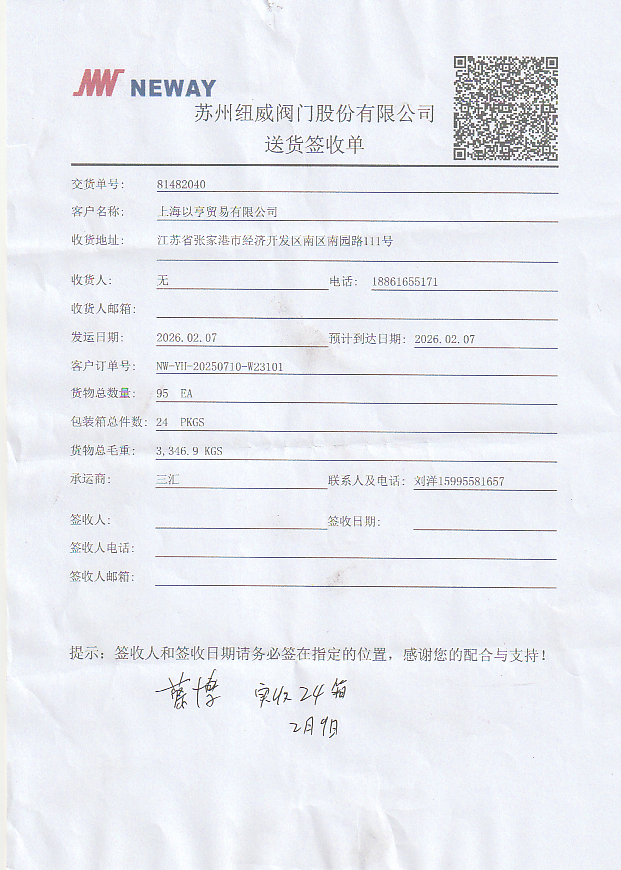 NEWAY
苏州纽威阀门股份有限公司
送货签收单
交货单号: 81482040
客户名称: 上海以亨贸易有限公司
收货地址: 江苏省张家港市经济开发区南区南园路111号
收货人: 无 电话: 18861655171
收货人邮箱:
发运日期: 2026.02.07 预计到达日期: 2026.02.07
客户订单号: NW-YH-20250710-W23101
货物总数量: 95 EA
包装箱总件数: 24 PKGS
货物总毛重: 3,346.9 KGS
承运商: 三汇 联系人及电话: 刘洋15995581657
签收人: 签收日期:
签收人电话:
签收人邮箱:
提示: 签收人和签收日期请务必签在指定的位置, 感谢您的配合与支持!
实收24箱
2月9日